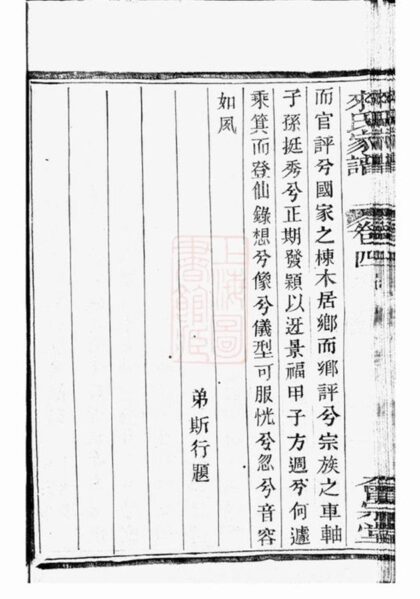 來氏家譜 卷四
而官評兮國家之棟木居鄉而鄉評兮宗族之車軸
子孫挺秀兮正期發穎以迓景福甲子方週兮何遽
乘箕而登仙錄想兮像兮儀型可服恍兮忽兮音容
如夙
弟斯行題
上海圖書館藏